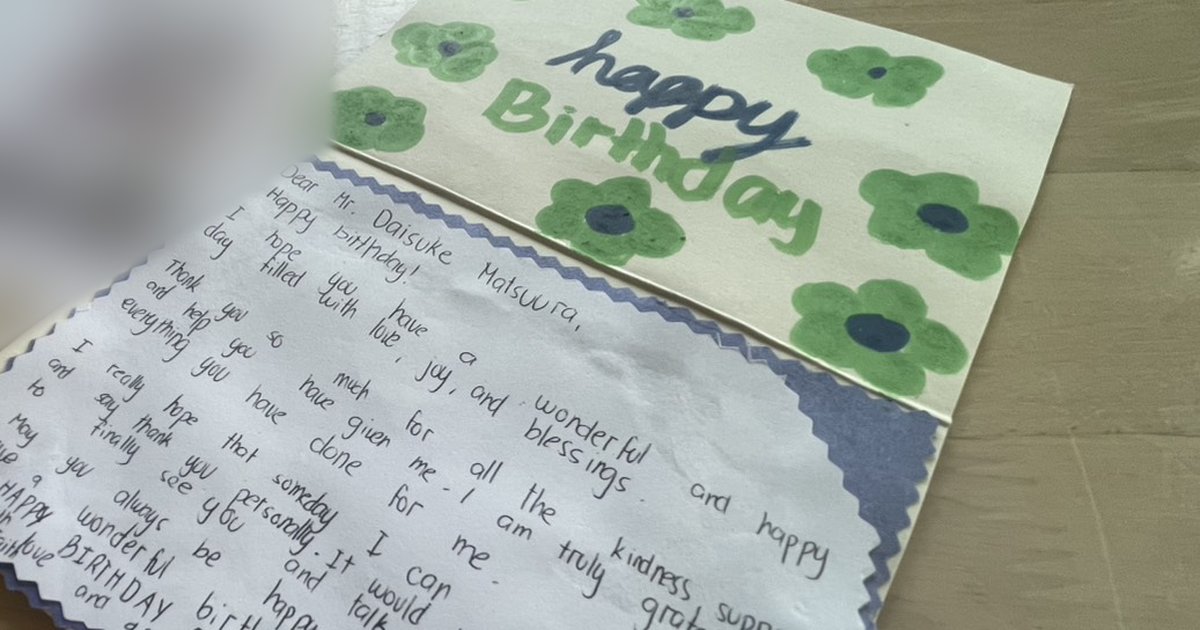 happy
Birthday
Dear Mr. Daisuke Matsuura,
Happy Birthday!
I hope you have a wonderful and happy
day filled with love, joy, and blessings.
Thank you so much for all the kindness
and help you have given me. I am truly
everything you have done for me.
I really hope that someday I can
and say thank you personally. It would
to finally see you and talk
May you always be
a wonderful
HAPPY BIRTHDAY
love and